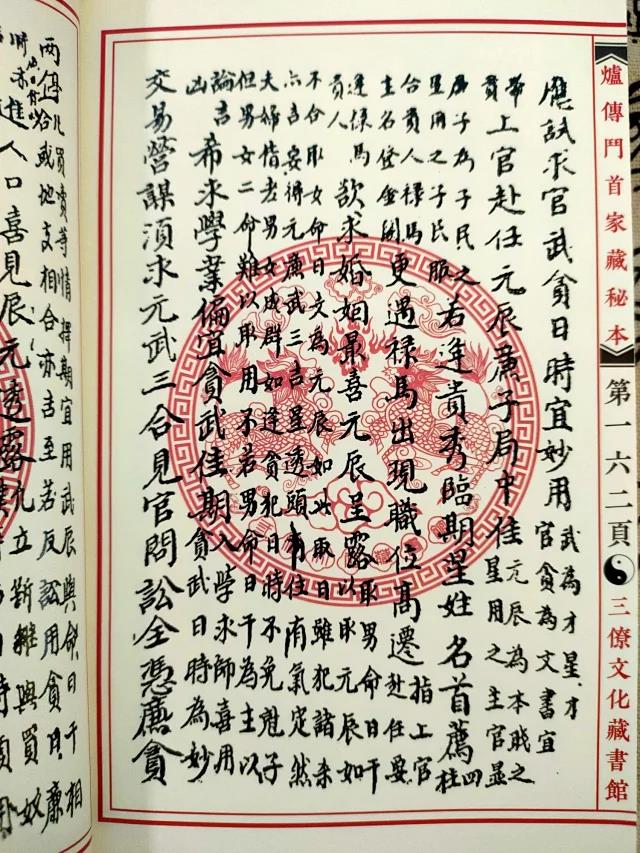 爐傳門首家藏秘本 第一六二頁 三僚文化藏書館
應試求官武貪日時宜妙用
武為才星才
官貪為文書宜
帶
貴
上官赴任元辰廉子局中佳
元辰為本賤之
星用之主官显
為子為子民之
星用之子民服
若逢貴秀臨期星姓名首薦
四
柱
合貴人祿馬
主名登金闕
更遇祿馬出現職位高遷
指上官
赴任要
逢祿馬
貴人
欲求婚姻最喜元辰呈露
取男命日干
以取元辰如
不合取女命日文為元辰如此取日雖犯諸杀
六吉安得元廉武三吉星透頭有住有氣定然
夫婦偕老男女成群如逢貪犯日時不免尅子
但男女二命難以取用不若男命日干為主以
論吉
凶
希求學業偏宜貪武佳期
入學求師喜用
貪武日時為妙
交易營謀須求元武三合見官問訟全憑廉貪
凡買賣等情擇期宜用武辰與命日干相
合或地支相合亦吉至若反訟用貪日廉
人口喜見辰元透露